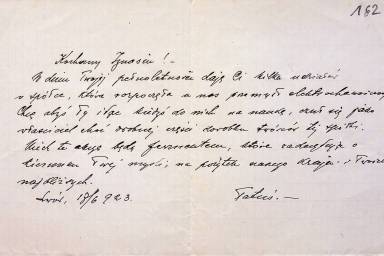 182
Kochany Zygusiu! –
W dniu Twojej pełnoletności daję Ci kilka udziałów
w spółce, która rozpoczęła u nas przemysł elektrochemiczny
Chcę abyś Ty idąc do nich na naukę, czuł się jako
właściciel choć drobnej części dorobku twórców tej spółki.
Niech te akcje będą fermentem, które zadecydują o
kierunku Twej myśli, na pożytek naszego Kraju i Twoich
najbliższych.
Lwów, 17/6 923. Tatuś. –